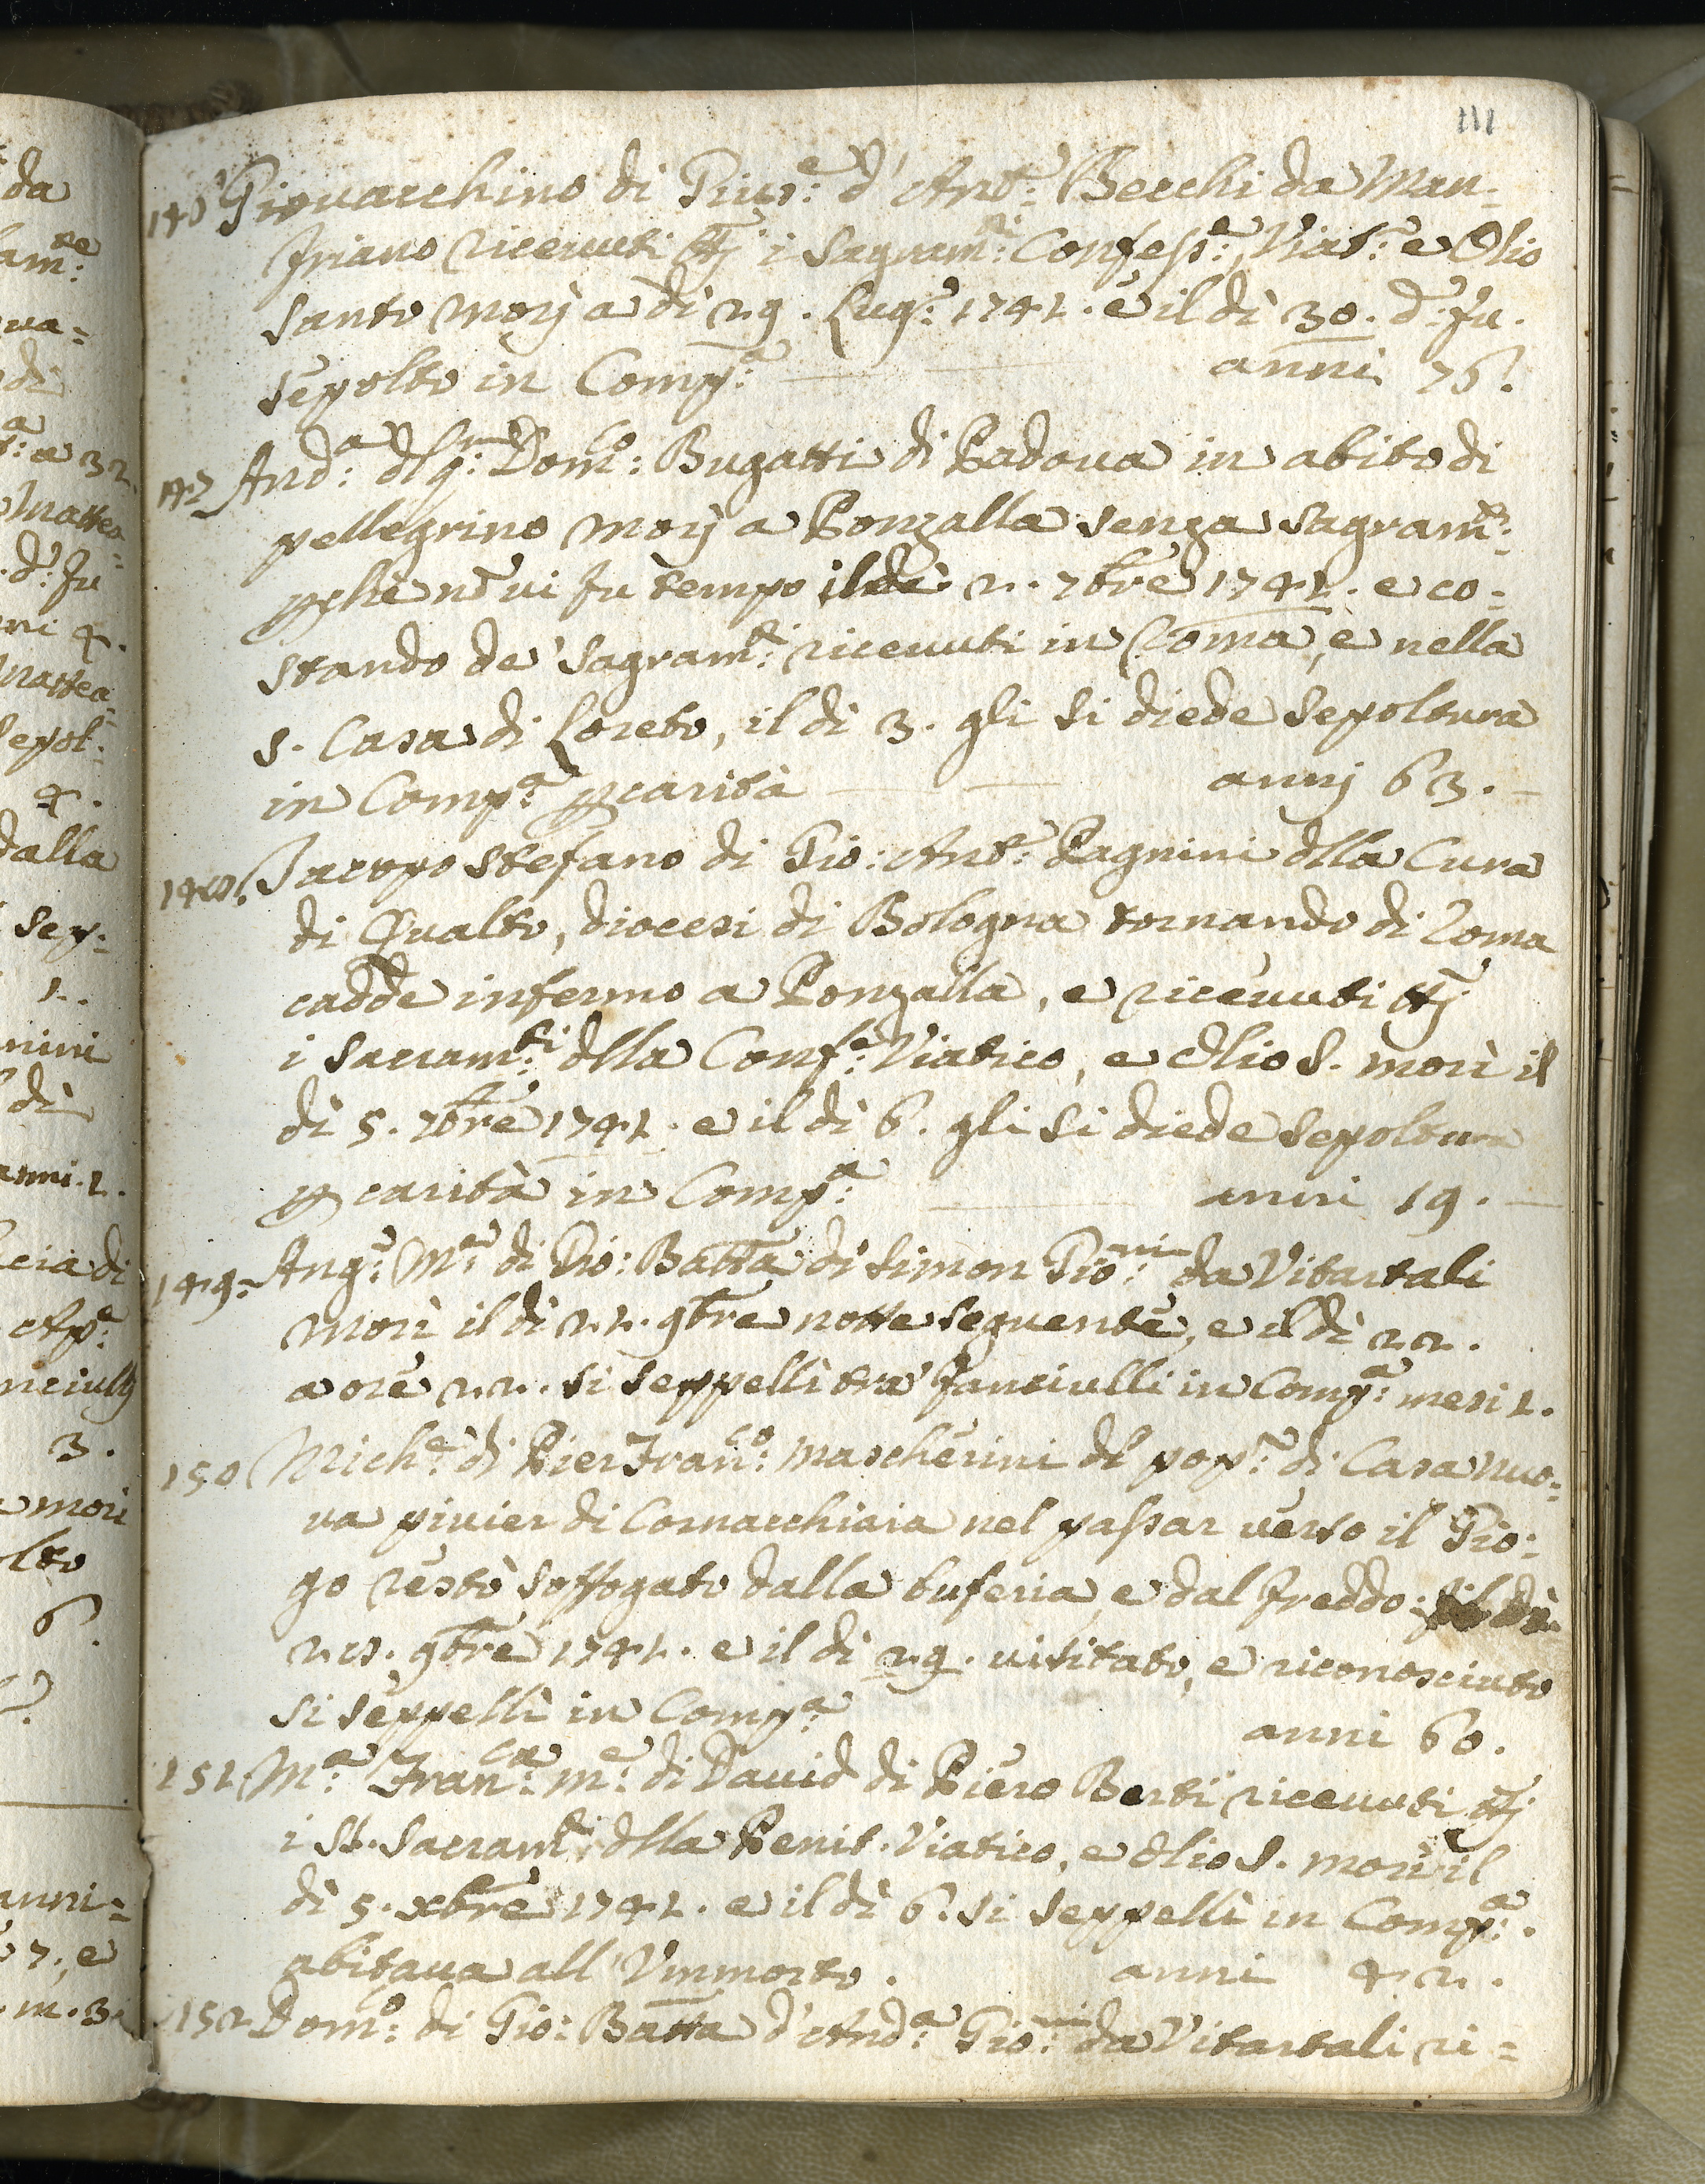 111
146 Giovacchino di Gius:e d'Ant:o Becchi da Man=
friano ricevuti ttj i Sagram:ti Confess:e, Viat:o e Olio
Santo morj a dì 29. Lug:o 1741. e il dì 30. d:o fu
sepolto in Comp:a anni 76.
147 And:a dl q:m Dom:co Bugatti di Padova in abito di
pellegrino morj a Ronzalla senza Sagram:ti
pchè nō vi fu tempo il dì 2. 7bre 1741. e co=
stando de' Sagram:ti ricevuti in Roma, e nella
S. Casa di Loreto, il dì 3. gli si diede sepoltura
in Comp:a p carità annj 63.
148. Jacopo Stefano di Gio: Ant:o Pagnini dlla Cura
di Qualto, diocesi di Bologna tornando di Roma
cadde infermo a Ronzalla, e ricevuti ttj
i Sacram:ti dlla Conf:e Viatico, e Olio S. morì il
dì 5. 7bre 1741. e il dì 6. gli si diede sepoltura
p carità in Comp:a anni 19.
149. Ang:o M:a di Gio: Batta di Simon Gio:ni da Vitartali
morì il dì 21. 9bre notte seguente, e il dì 22.
a ore 22. si seppellì tra' fanciulli in Comp:a mesi 1.
150 Mich:e di Pier Fran:co Mascherini dl pop:o di Casanuo=
va pivier di Cornacchiaia nel passar verso il Gio=
go restò soffogato dalla buferia e dal freddo: il dì
28. 9bre 1741. e il dì 29. visitato, e riconosciuto
si seppellì in Comp:a anni 60.
151. M:a Fran:ca m:e di David di Piero Berti ricevuti ttj
i SS. Sacram:ti dlla Penit. Viatico, e Olio S. morì il
dì 5. Xbre 1741. e il dì 6. si seppellì in Comp:a.
abitava all'Vmmorto. anni 42.
152 Dom:o di Gio: Batta d'And:a Gio:ni da Vitartali ri=